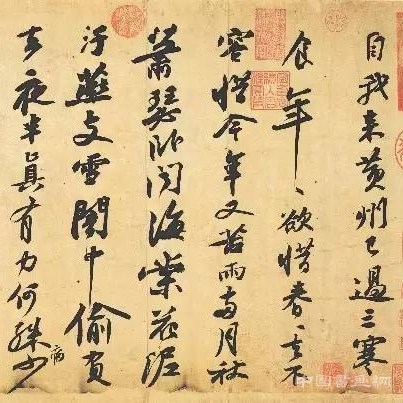 自我來黃州已過三寒
食年〻欲惜春〻去不
容惜今年又苦雨兩月秋
蕭瑟卧聞海棠花泥
汙燕支雪闇中偷負
去夜半真有力何殊少
病
中国書画網